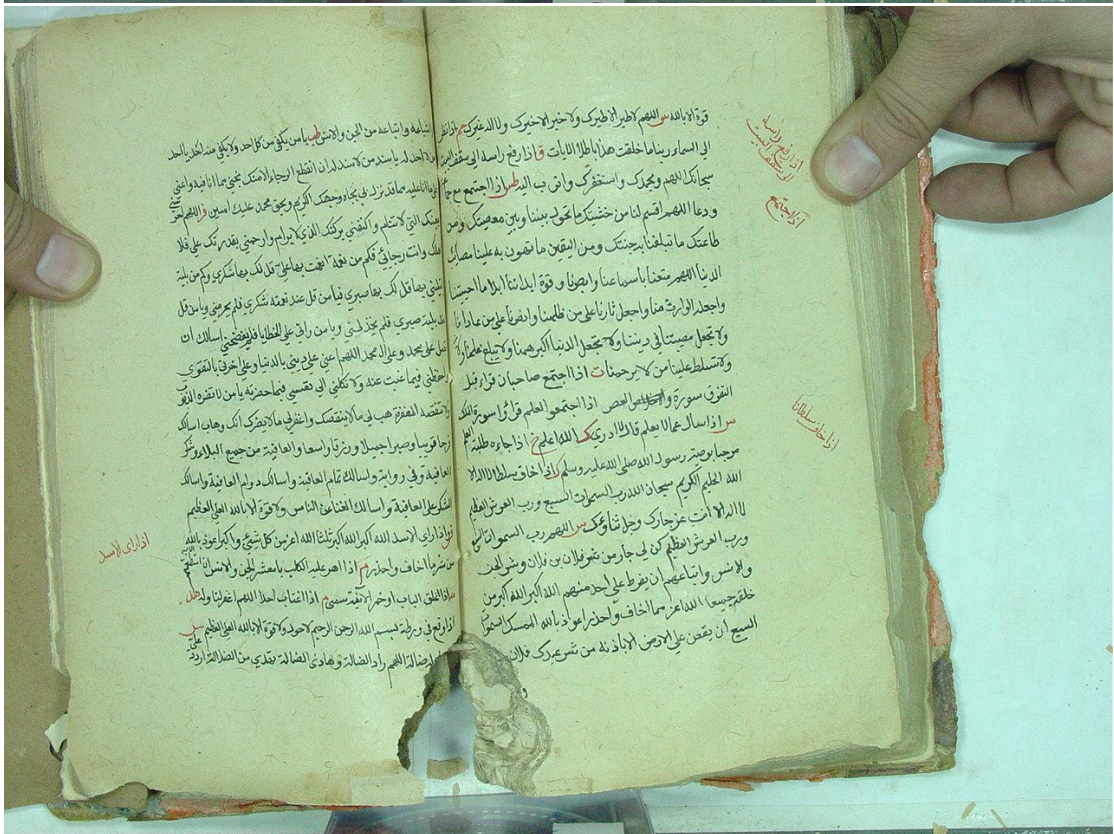 قوة الا بالله س اللهم لا طير الا طيرك ولا خير الا خيرك ولا اله غيرك م اذا نظر
الى السماء ربنا ما خلقت هذا باطلا الايات ق اذا رفع راسه الى سقف البيت
سبحانك اللهم وبحمدك واستغفرك واتوب اليك طس اذا اجتمع مع جماعة
ودعا اللهم اقسم لنا من خشيتك ما تحول بيننا وبين معصيتك ومن
طاعتك ما تبلغنا به جنتك ومن اليقين ما تهون به علينا مصائب
الدنيا اللهم متعنا باسماعنا وابصارنا وقوة ابداننا ابدا ما احييتنا
واجعله الوارث منا واجعل ثارنا على من ظلمنا وانصرنا على من عادانا
ولا تجعل مصيبتنا في ديننا ولا تجعل الدنيا اكبر همنا ولا مبلغ علمنا ولا
ولا تسلط علينا من لا يرحمنا ت اذا اجتمع صاحبان قراء قبل
التفرق سورة والعصر اذا اجتمعوا العلم قرؤا سورة
س اذا سال عما لا يعلم قال لا ادري ك الله اعلم خ اذا جاءه طلبة العلم
مرحبا بوصية رسول الله صلى الله عليه وسلم ك اذا خاف سلطانا لا اله الا
الله الحليم الكريم سبحان الله رب السموات السبع ورب العرش العظيم
لا اله الا انت عز جارك وجل ثناؤك س اللهم رب السموات السبع
ورب العرش العظيم كن لي جار من شر فلان بن فلان وشر الجن
والانس واتباعهم ان يفرط علي احد منهم الله اكبر الله اكبر من
خلقه جميعا الله اعز مما اخاف واحذر اعوذ بالله الممسك السموات
السبع ان يقعن على الارض الا باذنه من شر عبدك فلان
اذا رفع راسه
الى سقف البيت
اذا اجتمع
اذا خاف سلطانا
اتباعه واشياعه من الجن والانس طب يا من يكفي من كل احد ولا يكفي منه احد يا احد
من لا احد له يا سند من لا سند له انقطع الرجاء الا منك نجني مما انا فيه واعني
على ما انا عليه مما قد نزل بي بجاه وجهك الكريم وبحق محمد عليك امين فر اللهم احرسني
بعينك التي لا تنام واكنفني بركنك الذي لا يرام وارحمني بقدرتك علي فلا
اهلك وانت رجائي فكم من نعمة انعمت بها علي قل لك بها شكري وكم من بلية
ابتليتني بها قل لك بها صبري فيا من قل عند نعمته شكري فلم يحرمني ويا من قل
عند بليته صبري فلم يخذلني ويا من راني على الخطايا فلم يفضحني اسالك ان
تصل على محمد وعلى ال محمد اللهم اعني على ديني بالدنيا وعلى اخرتي بالتقوى
واحفظني فيما غبت عنه ولا تكلني الى نفسي فيما حضرته يا من لا تضره الذنوب
ولا تنقصه المغفرة هب لي ما لا ينقصك واغفر لي ما لا يضرك انك وهاب اسالك
فرجا قريبا وصبرا جميلا ورزقا واسعا والعافية من جميع البلاء وشكر
العافية وفي رواية واسالك تمام العافية واسالك دوام العافية واسالك
الشكر على العافية واسالك الغنا عن الناس ولا قوة الا بالله العلي العظيم
اذا راى الاسد الله اكبر الله اكبر ثلثا الله اعز من كل شيء واكبر اعوذ بالله
من شر ما اخاف واحذر م اذا اهر عليه الكلب يا معشر الجن والانس ان استطعتم الاية
اذا اغلق الباب او خمر الانية سمى م اذا اغتاب احدا اللهم اغفر لنا وله
اذا وقع في ورطة بسم الله الرحمن الرحيم لا حول ولا قوة الا بالله العلي العظيم
ضالة اللهم راد الضالة وهادي الضالة تهدي من الضلالة اردد علي
اذا راى الاسد